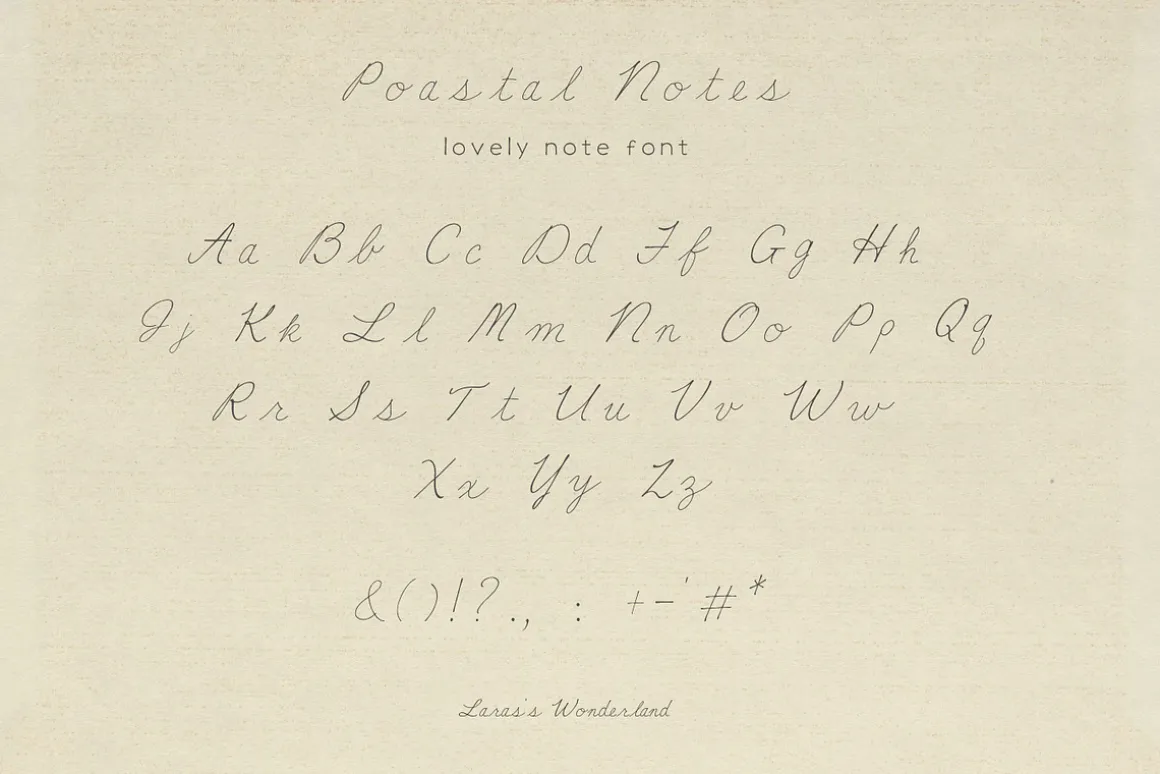 Poastal Notes
lovely note font
Aa Bb Cc Dd Ff Gg Hh
Jj Kk Ll Mm Nn Oo Pp Qq
Rr Ss Tt Uu Vv Ww
Xx Yy Zz
&()!?., : +-'#*
Laras's Wonderland